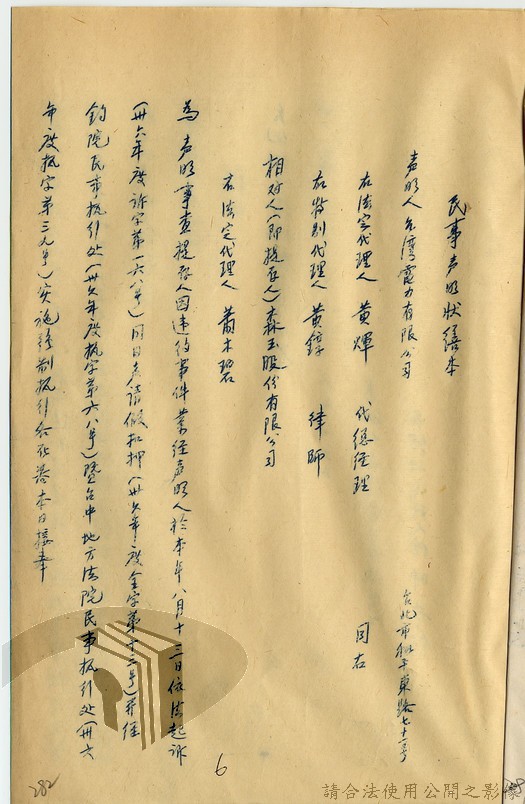 民事声明狀繕本
声明人 台灣電力有限公司 台北市和平東路七十一号
右法定代理人 黄煇 代總經理 同右
右特別代理人 黄錞 律師
相对人(即提存人)森玉股份有限公司
右法定代理人 蕭木碧
為声明事查提存人因違約事件業經声明人於本年八月十三日依法起訴
(卅六年度訴字第一六八号)同日声請假扣押(卅六年度全字第十二号)并經
鈞院民事执行处(卅六年度执字第六八号)暨台中地方法院民事执行处(卅六
年度执字第三九号)实施強制执行各在案本日接奉
6
282
請合法使用公開之影像